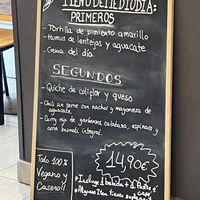 MENÚ DE MEDIODÍA:
PRIMEROS
- Tortilla de pimiento amarillo
- Humus de lentejas y aguacate
- Crema del día
SEGUNDOS
- Quiche de coliflor y queso
- Chili sin carne con nachos y mayonesa de
aguacate.
- Curry rojo de garbanzos, calabaza, espinacas y
arroz basmati integral.
14,90€
Todo 100%
Vegano y
Casero!!
* Incluye 1 bebida + 1 postre ó
café
* Algunos